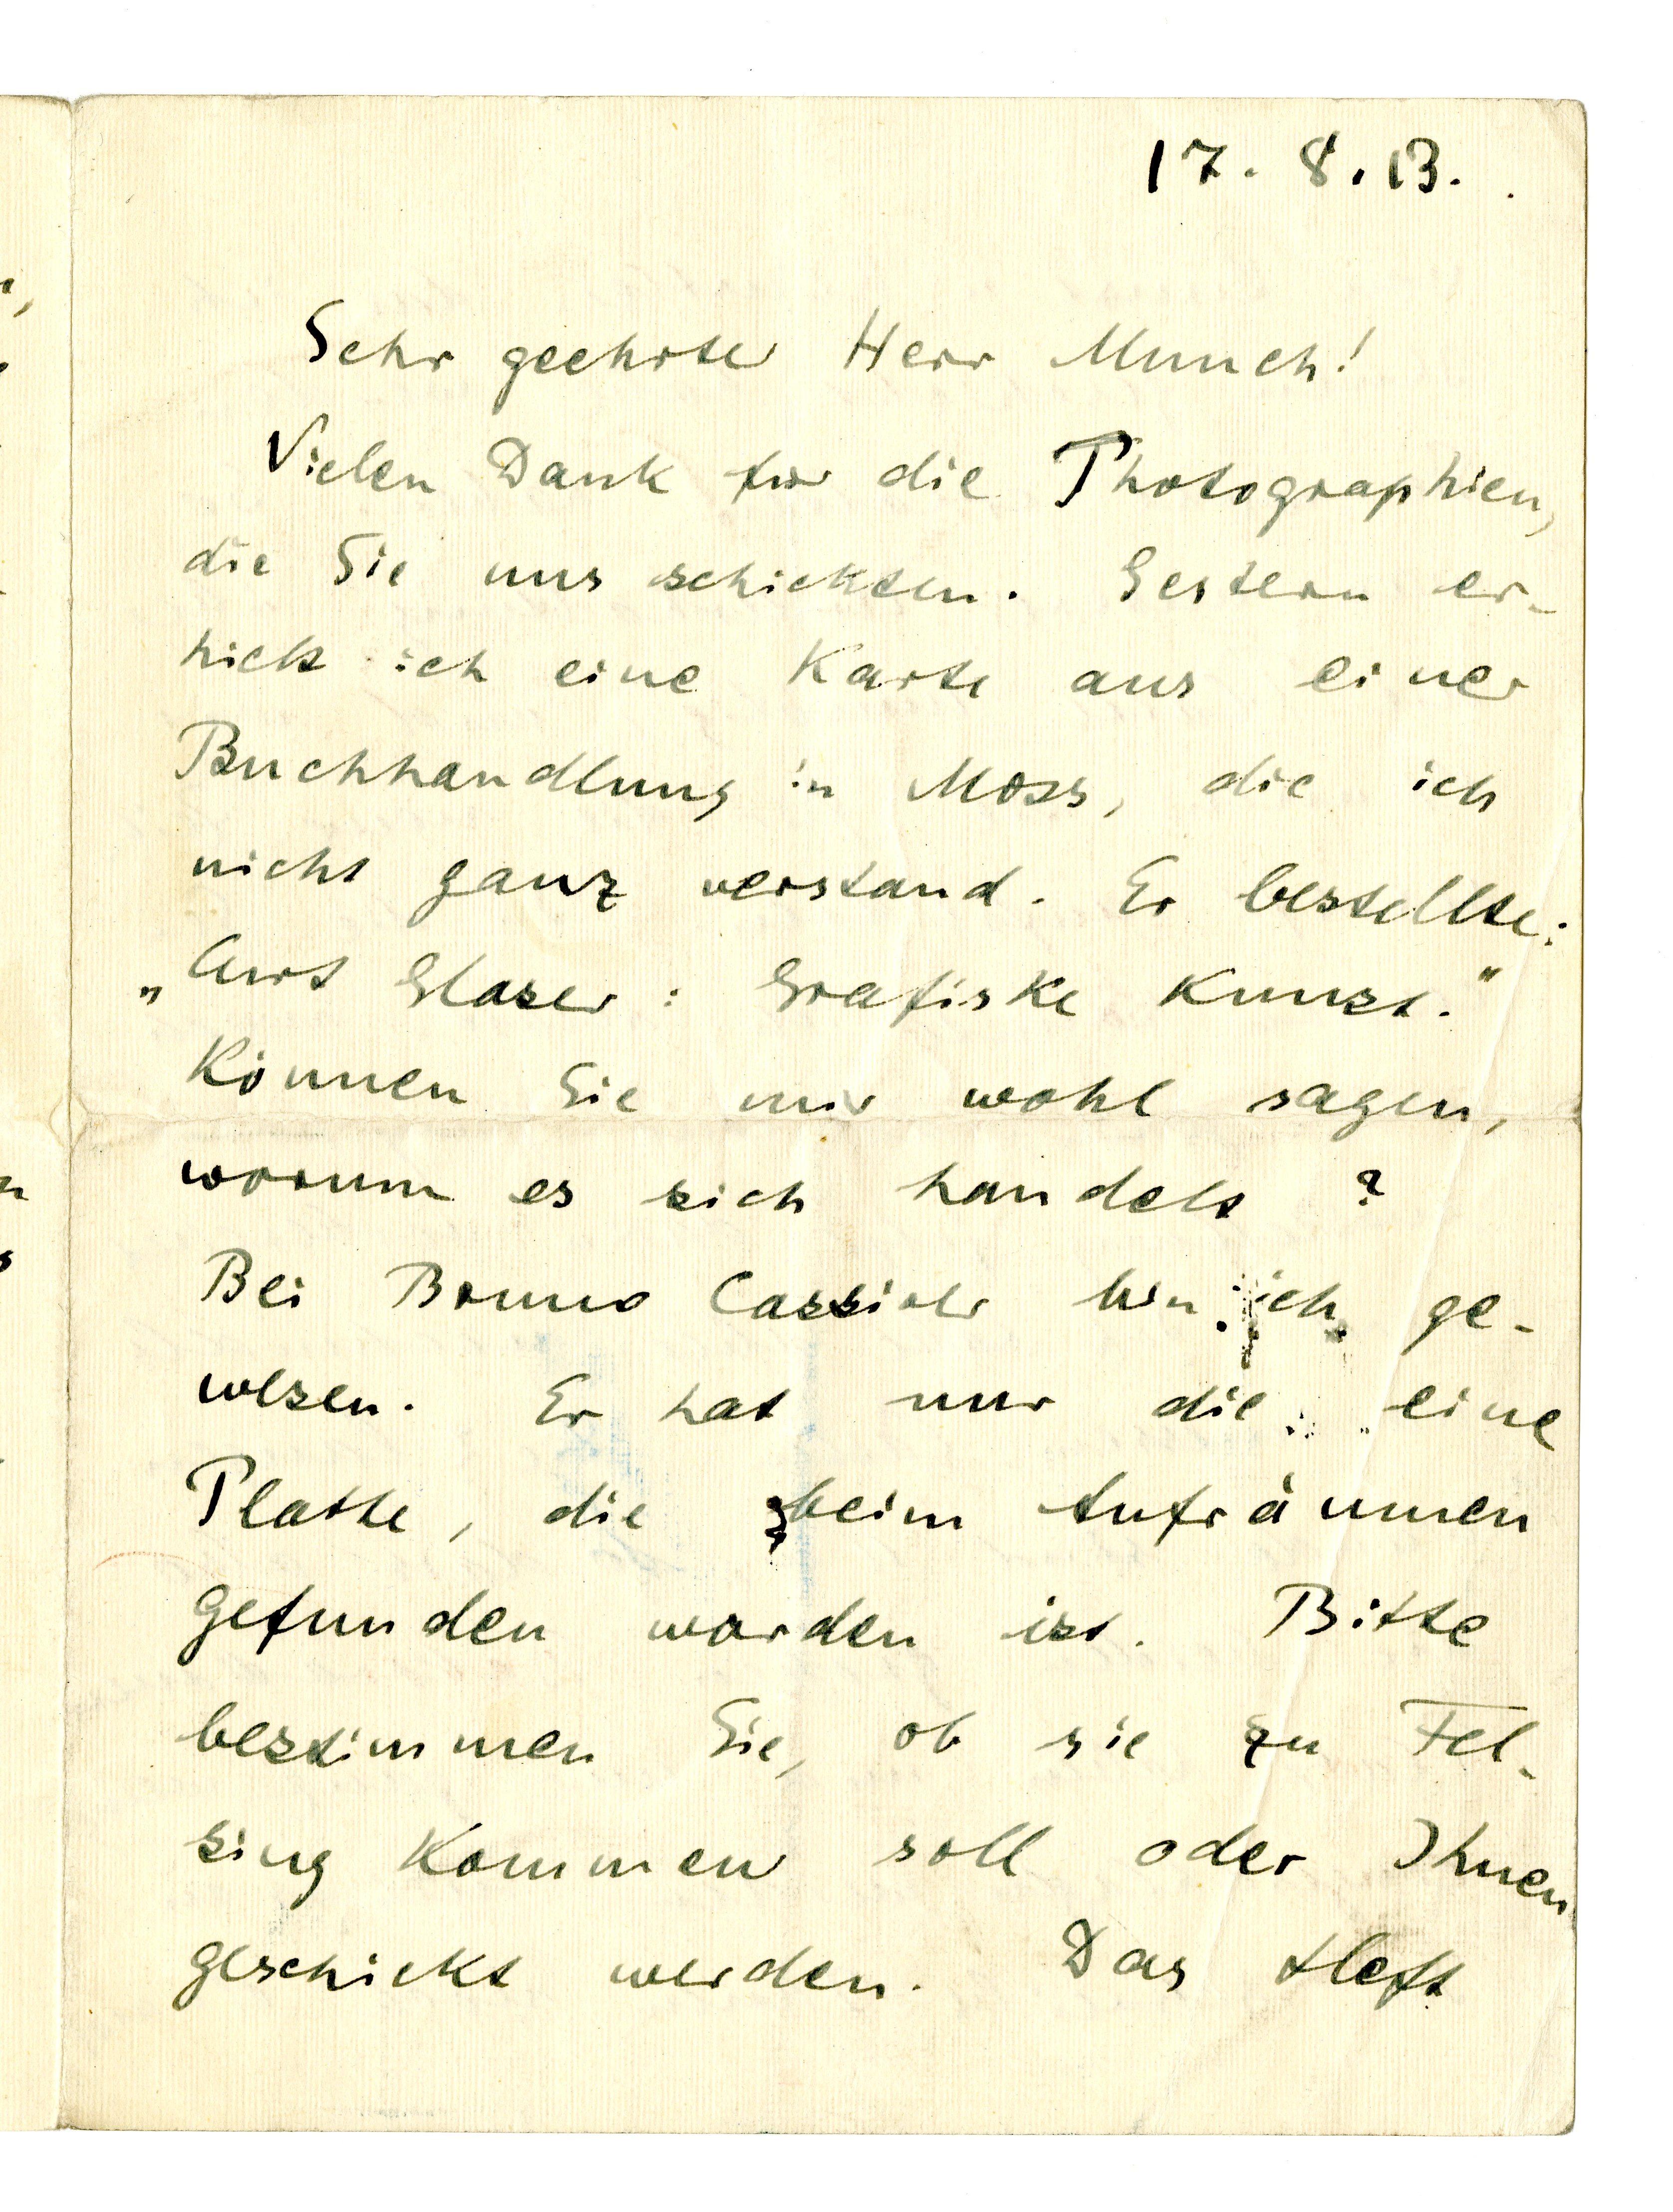 17. 8. 13.
Sehr geehrter Herr Munch!
Vielen Dank für die Photographien,
die Sie uns schickten. Gestern er-
hielt ich eine Karte aus einer
Buchhandlung in Moss, die ich
nicht ganz verstand. Er bestellte:
„Curt Glaser: Grafiske Kunst."
Können Sie mir wohl sagen,
worum es sich handelt?
Bei Bruno Cassirer bin ich ge-
wesen. Er hat nur die eine
Platte, die beim Aufräumen
gefunden worden ist. Bitte
bestimmen Sie, ob sie zu Fel-
sing kommen soll oder Ihnen
geschickt werden. Das Heft